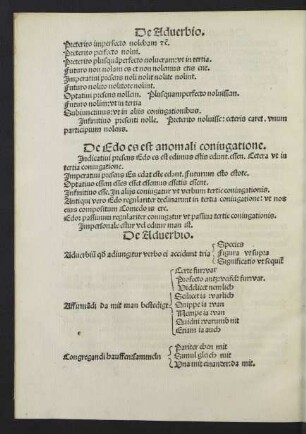 De Aduerbio.
Preterito imperfecto nolebam ꝛc.
Preterito perfecto nolui.
Preterito plusquãperfecto nolueram: vt in tertia.
Futuro non nolam es et non nolemus etis ent.
Imperatiui presens noli nolit nolite nolint.
Futuro nolito nolitote nolint.
Optatiui presens nollem. Plusquamperfecto noluissem.
Futuro nolim: vt in tertia
Subiunctiuus: vt in alijs coniugationibus.
Infinitiuo presenti nolle. Preterito noluisse: ceteris caret. vnum
participium nolens.
De Edo es est anomali coniugatione.
Indicatiui presens Edo es est edimus estis edunt. essen. Cetera vt in
tertia coniugatione.
Imperatiui presens Es edat este edant. Futurum esto estote.
Optatiuo essem esses esset essemus essetis essent.
Infinitiuo esse. In alijs coniugatur vt verbum tertie coniugationis.
Antiqui vero Edo regulariter declinarunt in tertia coniugatione: vt nos
eius compositum Comedo is ere.
Edor passiuum regulariter coniugatur vt passiua tertie coniugationis.
Impersonale estur vel editur man ist.
De Aduerbio.
Aduerbiũ qđ adiungitur verbo ei accidunt tria
Species
Figura vt supra
Significatio vt sequit̃
Affirmãdi da mit man bestedigt
Certe furwar
Profecto antzweifelt furwar.
Videlicet nemlich
Scilicet ia warlich
Quippe ia wan
Nempe ia wan
Quidni warumb nit
Etiam ia auch
Congregandi hauffen sammeln
Pariter eben mit
Simul gleich mit
Vna mit einander: da mit.